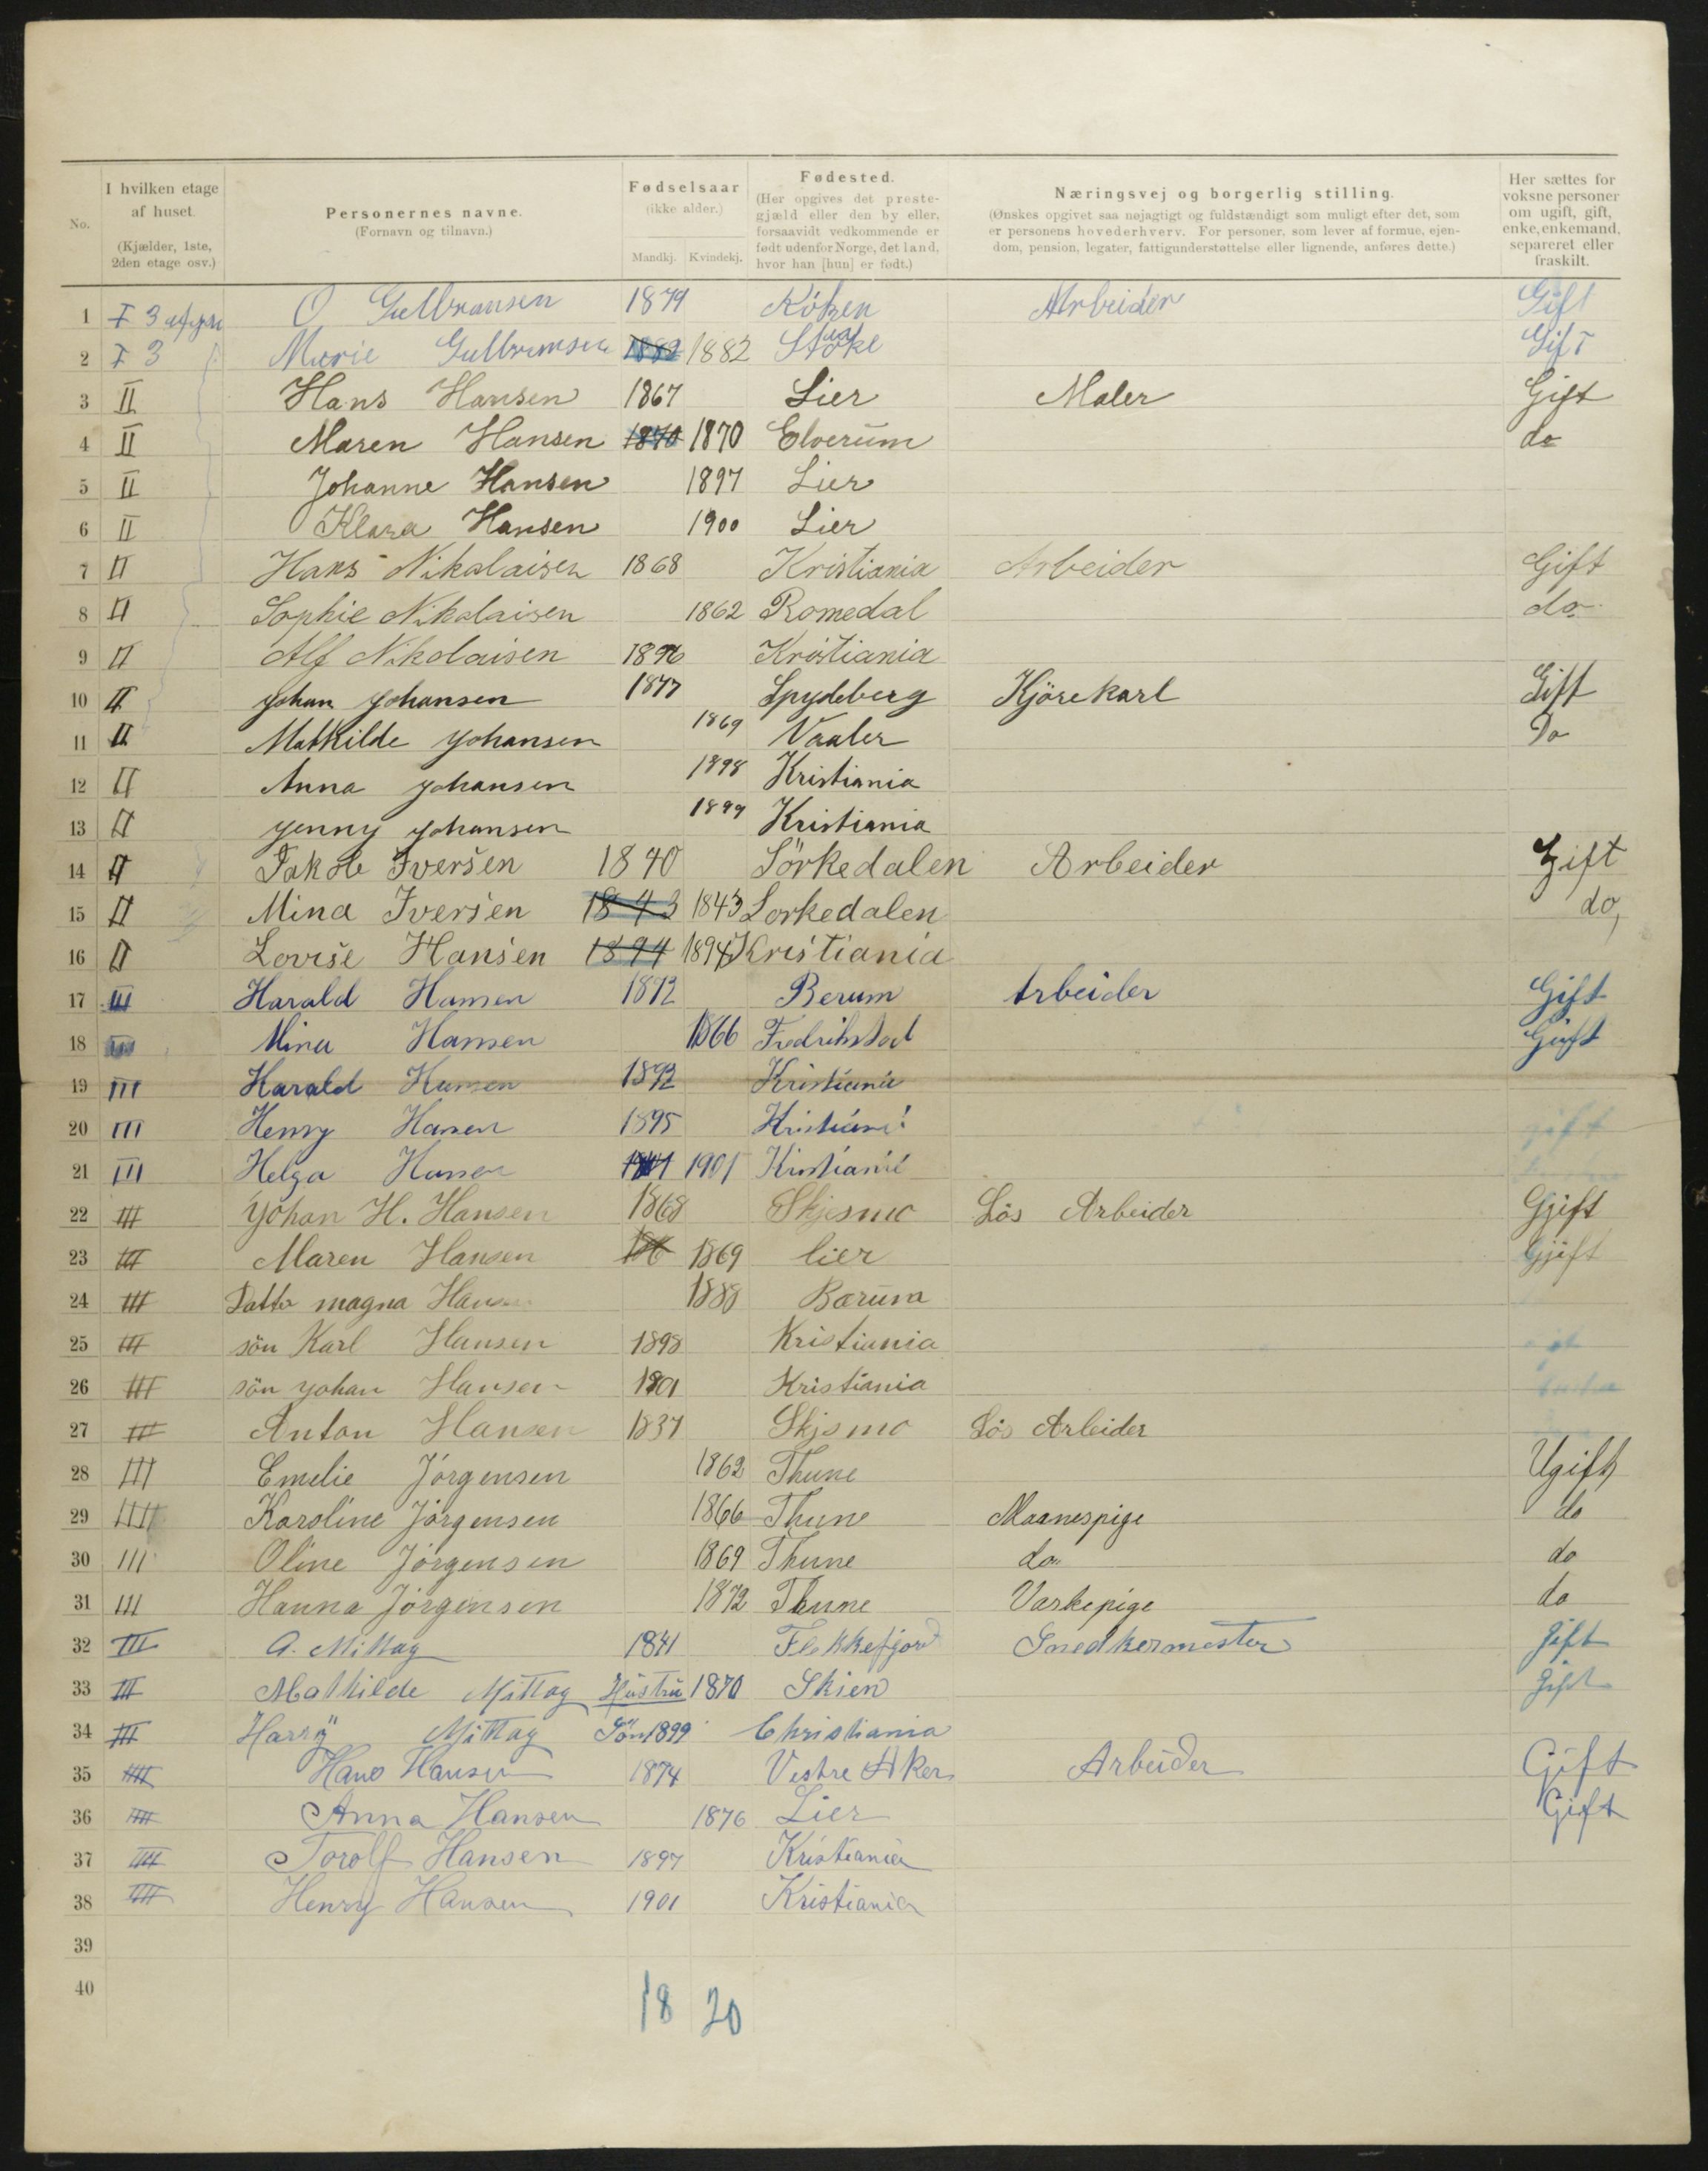 No.
I hvilken etage af huset. (Kjælder, 1ste, 2den etage osv.)
Personernes navne. (Fornavn og tilnavn.)
Fødselsaar (ikke alder.)
Mandkj. Kvindekj.
Fødested. (Her opgives det prestegjæld eller den by eller, forsaavidt vedkommende er født udenfor Norge, det land, hvor han [hun] er født.)
Næringsvej og borgerlig stilling. (Ønskes opgivet saa nøjagtigt og fuldstændigt som muligt efter det, som er personens hovederhverv. For personer, som lever af formue, ejendom, pension, legater, fattigunderstøttelse eller lignende, anføres dette.)
Her sættes for voksne personer om ugift, gift, enke, enkemand, separeret eller fraskilt.
1 I 3 O Gulbransen 1879 Röken Arbeider Gift
2 I 3 Marie Gulbransen 1882 1882 Stoke Gift
3 II Hans Hansen 1867 Lier Maler Gift
4 II Maren Hansen 1870 1870 Elverum do
5 II Johanne Hansen 1897 Lier
6 II Klara Hansen 1900 Lier
7 II Hans Nikolaisen 1868 Kristiania Arbeider Gift
8 II Sophie Nikolaisen 1862 Romedal do
9 II Alf Nikolaisen 1896 Kristiania
10 II Johan Johansen 1877 Spydeberg Kjörekarl Gift
11 II Mathilde Johansen 1869 Vaaler Do
12 II Anna Johansen 1898 Kristiania
13 II Jenny Johansen 1899 Kristiania
14 II Jakob Iversen 1840 Sörkedalen Arbeider Gift
15 II Mina Iversen 1843 1843 Sorkedalen do,
16 II Lovise Hansen 1894 1894 Kristiania
17 III Harald Hansen 1872 Berum Arbeider Gift
18 III Mina Hansen 1866 Fredrikstad Gift
19 III Harald Hansen 1892 Kristiania
20 III Henry Hansen 1895 Kristiani
21 III Helga Hansen 1901 1901 Kristiania
22 III Johan H. Hansen 1868 Skjesmo Lös Arbeider Gjift
23 III Maren Hansen 186 1869 lier Gjift
24 III Datter magna Hansen 1888 Bærum
25 III sön Karl Hansen 1898 Kristiania
26 III sön Johan Hansen 1901 Kristiania
27 III Anton Hansen 1837 Skjsmo Lös Arbeider
28 III Emelie Jörgensen 1862 Thune Ugift
29 III Karoline Jörgensen 1866 Thune Maanespige do
30 III Oline Jörgensen 1869 Thune do do
31 III Hanna Jörgensen 1872 Thune Vaskepige do
32 III A. Mittag 1841 Flekkefjord Snedkermester gift
33 III Mathilde Mittag Hustru 1870 Skien gift
34 III Harry Mittag Sön 1899 Christiania
35 IIII Hans Hansen 1874 Vestre Aker Arbeider Gift
36 IIII Anna Hansen 1876 Lier Gift
37 IIII Torolf Hansen 1897 Kristiania
38 IIII Henry Hansen 1901 Kristiania
39
40
18 20